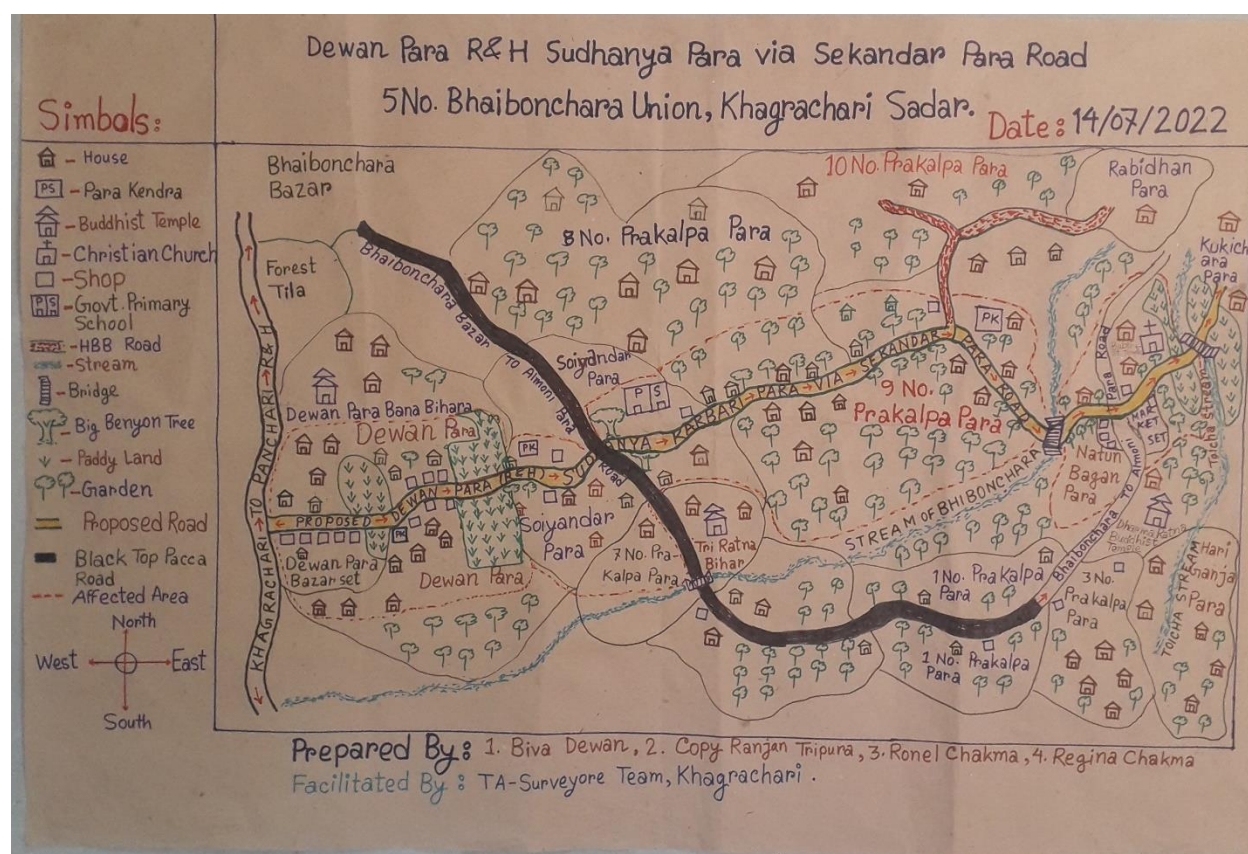 Dewan Para R&H Sudhanya Para via Sekandar Para Road
5No. Bhaibonchara Union, Khagrachari Sadar.
Date: 14/07/2022
Simbols:
- House
PS - Para Kendra
- Buddhist Temple
- Christian Church
- Shop
P S - Govt. Primary
School
- HBB Road
- Stream
- Bridge
- Big Benyon Tree
- Paddy Land
- Garden
Proposed Road
Black Top Pacca
Road
Affected Area
North
West
East
South
Bhaibonchara
Bazar
Forest
Tila
KHAGRACHARI TO PANCHARI R&H
Bhaibonchara Bazar TO Almoni Para Road
8 No. Prakalpa Para
10 No. Prakalpa Para
Rabidhan
Para
Kukich
ara
Para
Soiyandar
Para
P S
PK
Dewan Para Bana Bihara
Dewan Para
PK
PROPOSED DEWAN PARA (REH) SUDANYA KARBARI PARA VIA SEKANDAR PARA ROAD
9 No.
Prakalpa Para
PK
Dewan Para
Bazar set
Dewan Para
Soiyandar
Para
7 No. Pra-
Kalpa Para
Tri Ratna
Bihar
STREAM OF BHIBONCHARA
Natun
Bagan
Para
MAR
KET
SET
Bhaibonchara TO Almoni Para Road
Dharma Ratna
Buddhist
Temple
Toicha Stream
TOICHA STREAM
Hari
Ganja
Para
1 No. Prakalpa
Para
1 No. Prakalpa
Para
3 No.
Prakalpa
Para
Prepared By: 1. Biva Dewan, 2. Copy Ranjan Tripura, 3. Ronel Chakma, 4. Regina Chakma
Facilitated By: TA-Surveyore Team, Khagrachari.